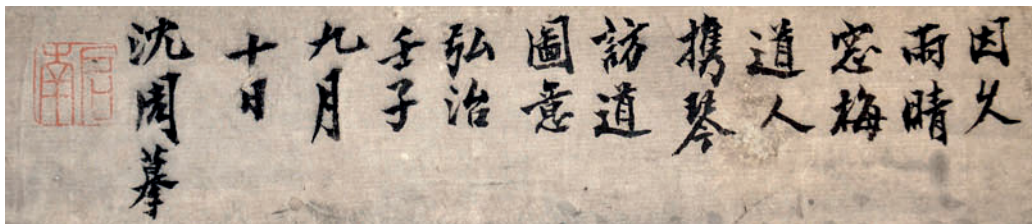 因久
雨晴
窓梅
道人
携琴
訪道
圖意
弘治
壬子
九月
十日
沈周摹
启南